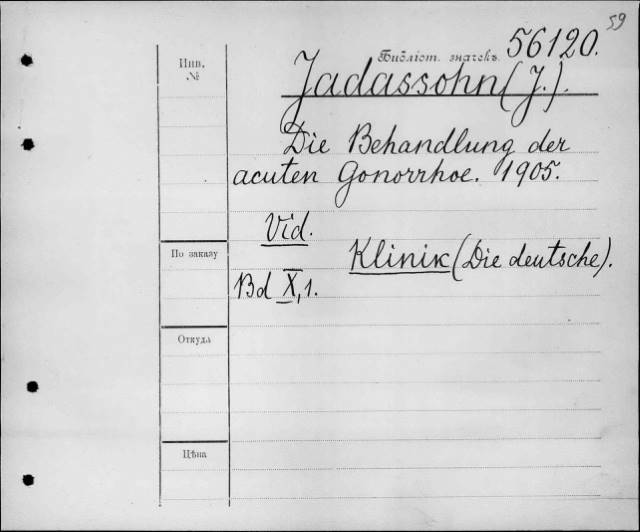 59
Библіот. значекъ 56120.
Инв.
№
Jadassohn (J.).
Die Behandlung der
acuten Gonorrhoe. 1905.
Vid.
По заказу
Klinik (Die deutsche).
Bd X, 1.
Откуда
Цѣна